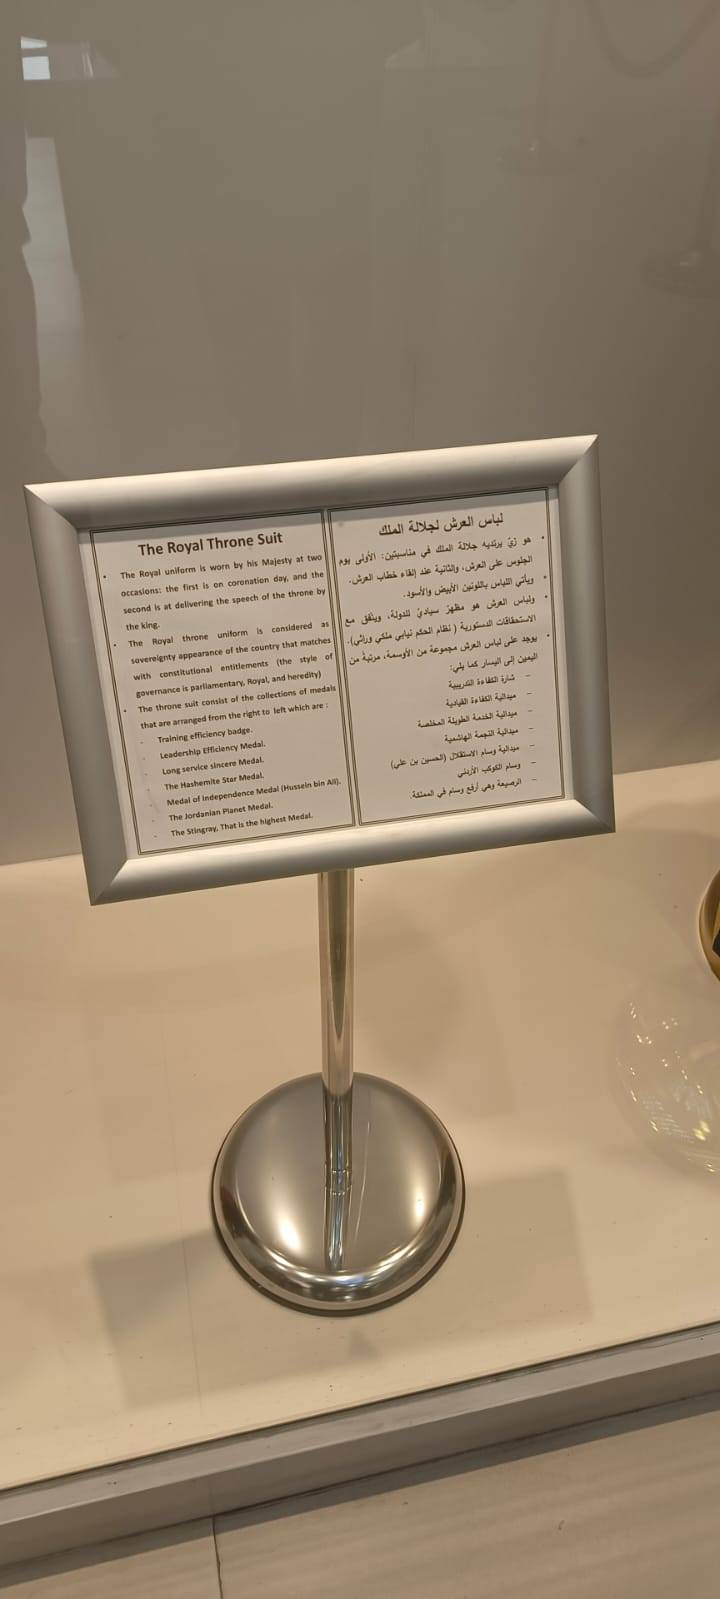 The Royal Throne Suit
• The Royal uniform is worn by his Majesty at two
occasions: the first is on coronation day, and the
second is at delivering the speech of the throne by
the king.
• The Royal throne uniform is considered as
sovereignty appearance of the country that matches
with constitutional entitlements (the style of
governance is parliamentary, Royal, and heredity)
• The throne suit consist of the collections of medals
that are arranged from the right to left which are :
- Training efficiency badge.
- Leadership Efficiency Medal.
- Long service sincere Medal.
- The Hashemite Star Medal.
- Medal of Independence Medal (Hussein bin Ali).
- The Jordanian Planet Medal.
- The Stingray, That is the highest Medal.
لباس العرش لجلالة الملك
• هو زيّ يرتديه جلالة الملك في مناسبتين: الأولى يوم
الجلوس على العرش، والثانية عند إلقاء خطاب العرش.
• ويأتي اللباس باللونين الأبيض والأسود.
• ولباس العرش هو مظهرٌ سياديٌ للدولة، ويتفق مع
الاستحقاقات الدستورية ( نظام الحكم نيابي ملكي وراثي).
• يوجد على لباس العرش مجموعة من الأوسمة، مرتبةً من
اليمين إلى اليسار كما يلي:
- شارة الكفاءة التدريبية
- ميدالية الكفاءة القيادية
- ميدالية الخدمة الطويلة المخلصة
- ميدالية النجمة الهاشمية
- ميدالية وسام الاستقلال (الحسين بن علي)
- وسام الكوكب الأردني
- الرصيعة وهي أرفع وسام في المملكة